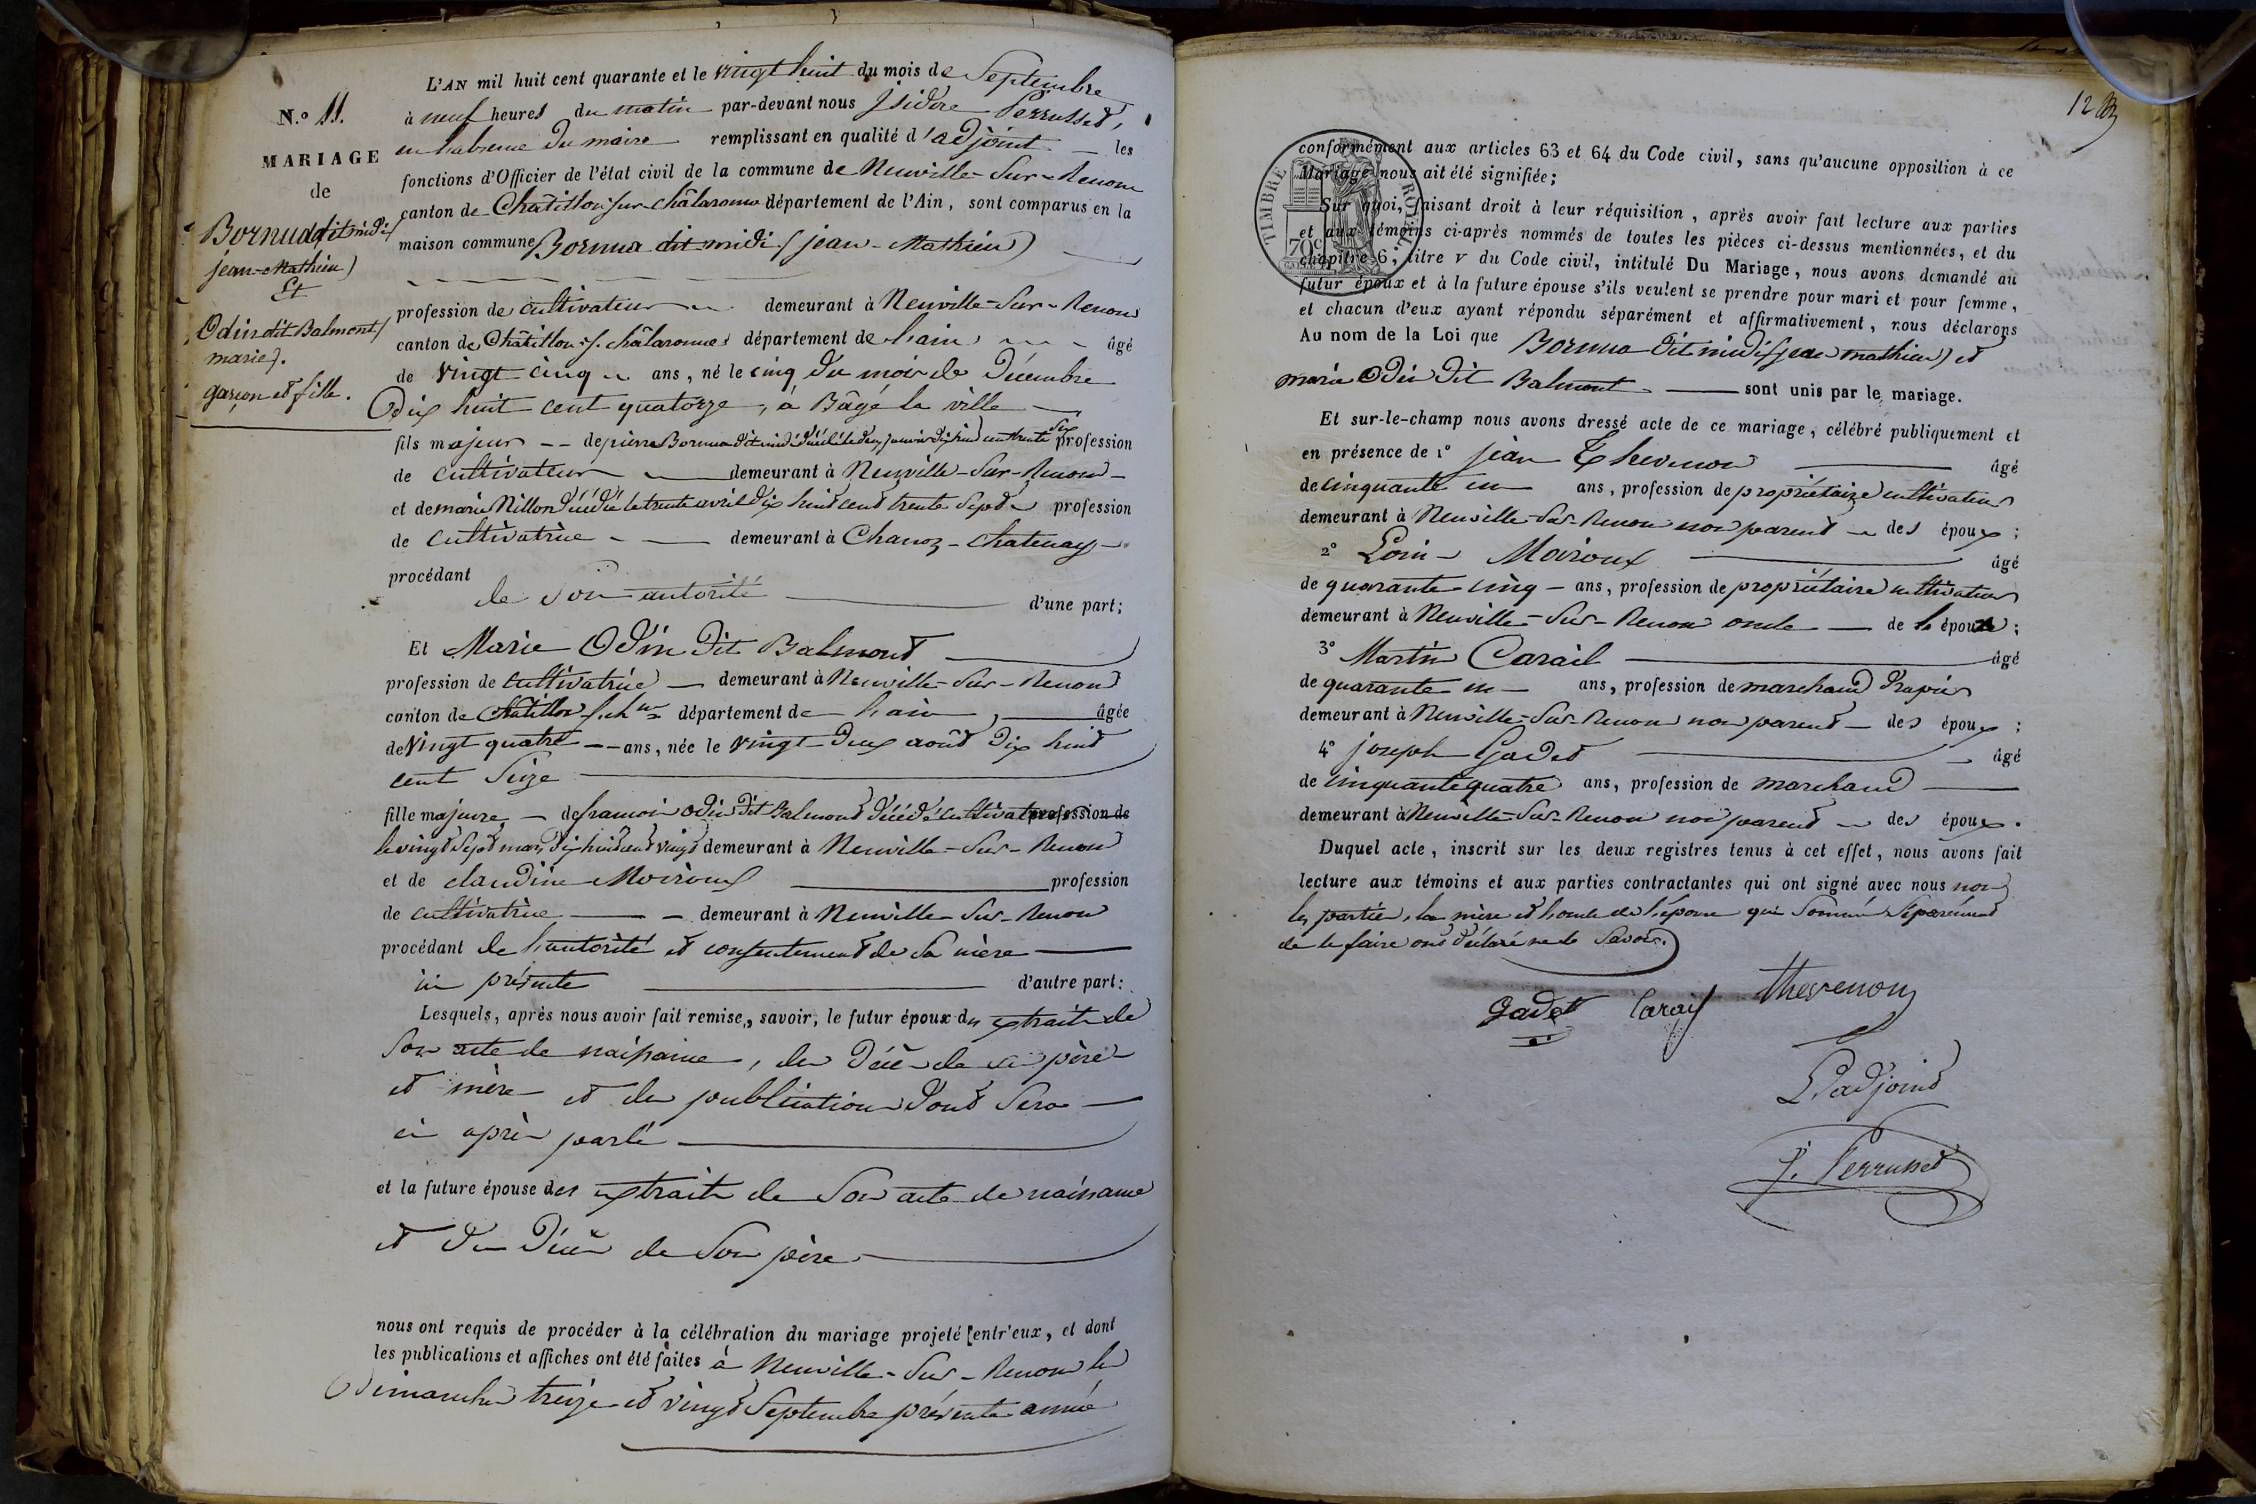 N.o 11.
MARIAGE
de
Bornua dit midi
(jean-Mathieu)
Et
Odin dit Balmont
marie).
garçon et fille.
L'AN mil huit cent quarante et le vingt huit du mois de Septembre
à neuf heures du matin par-devant nous Isidore Perrusset,
en l'absence du maire remplissant en qualité d'adjoint les
fonctions d'Officier de l'état civil de la commune de Neuville-Sur-Renom
canton de Châtillon sur châlaronne département de l'Ain, sont comparus en la
maison commune Bornua dit midi (jean-Mathieu)
profession de cultivateur demeurant à Neuville-Sur-Renom
canton de Châtillon s. châlaronne département de l'ain âgé
de vingt cinq ans, né le cinq du mois de Décembre
Dix huit cent quatorze, à Bâgé la ville
fils majeur de pierre Bornua dit midi décédé le deux janvier dix huit cent trente six profession
de cultivateur demeurant à Neuville-Sur-Renom
et de marie Nillon décédée le trente avril dix huit cent trente sept profession
de cultivatrice demeurant à Chanoz-Chatenay
procédant
de son autorité d'une part;
Et Marie Odin dit Balmont
profession de cultivatrice demeurant à Neuville-Sur-Renom
canton de Châtillon s. ch.ne département de l'ain, âgée
de vingt quatre ans, née le vingt-deux août dix huit
cent Seize
fille majeure de francois odin dit Balmont décédé cultivat profession de
le vingt sept mars dix huit cent vingt demeurant à Neuville-Sur-Renom
et de claudine Moiroux profession
de cultivatrice demeurant à Neuville-Sur-Renom
procédant de l'autorité et consentement de sa mère
ici présente d'autre part:
Lesquels, après nous avoir fait remise, savoir, le futur époux des extraits de
Son acte de naissance, du décès de ses père
et mère et de publication dont sera
ci après parlé
et la future épouse des extraits de Son acte de naissance
et du décès de Son père
nous ont requis de procéder à la célébration du mariage projeté entr'eux, et dont
les publications et affiches ont été faites à Neuville-Sur-Renom les
Dimanches treize et vingt Septembre présente année
12
TIMBRE ROYAL
70c
conformément aux articles 63 et 64 du Code civil, sans qu'aucune opposition à ce
Mariage nous ait été signifiée;
Sur quoi, faisant droit à leur réquisition, après avoir fait lecture aux parties
et aux témoins ci-après nommés de toutes les pièces ci-dessus mentionnées, et du
chapitre 6, titre v du Code civil, intitulé Du Mariage, nous avons demandé au
futur époux et à la future épouse s'ils veulent se prendre pour mari et pour femme,
et chacun d'eux ayant répondu séparément et affirmativement, nous déclarons
Au nom de la Loi que Bornua dit midi (jean mathieu) et
marie Odin dit Balmont sont unis par le mariage.
Et sur-le-champ nous avons dressé acte de ce mariage, célébré publiquement et
en présence de 1o jean Thevenon âgé
de cinquante un ans, profession de propriétaire cultivateur
demeurant à Neuville-Sur-Renom non parent des époux;
2o Moiroux âgé
de quarante cinq ans, profession de propriétaire cultivateur
demeurant à Neuville-Sur-Renom oncle de l'épouse;
3o Martin Carail âgé
de quarante un ans, profession de marchand drapier
demeurant à Neuville-Sur-Renom non parent des époux;
4o joseph Gadet âgé
de cinquante quatre ans, profession de marchand
demeurant à Neuville-Sur-Renom non parent des époux.
Duquel acte, inscrit sur les deux registres tenus à cet effet, nous avons fait
lecture aux témoins et aux parties contractantes qui ont signé avec nous non
les parties, la mère et l'oncle de l'épouse qui Sommés Séparément
de le faire ont déclaré ne le Savoir.
Gadet Carail Thevenon
L'adjoint
J. Perrusset